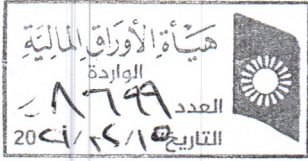 هيأة الأوراق المالية
الواردة
العدد ٨٦٩٩
التاريخ